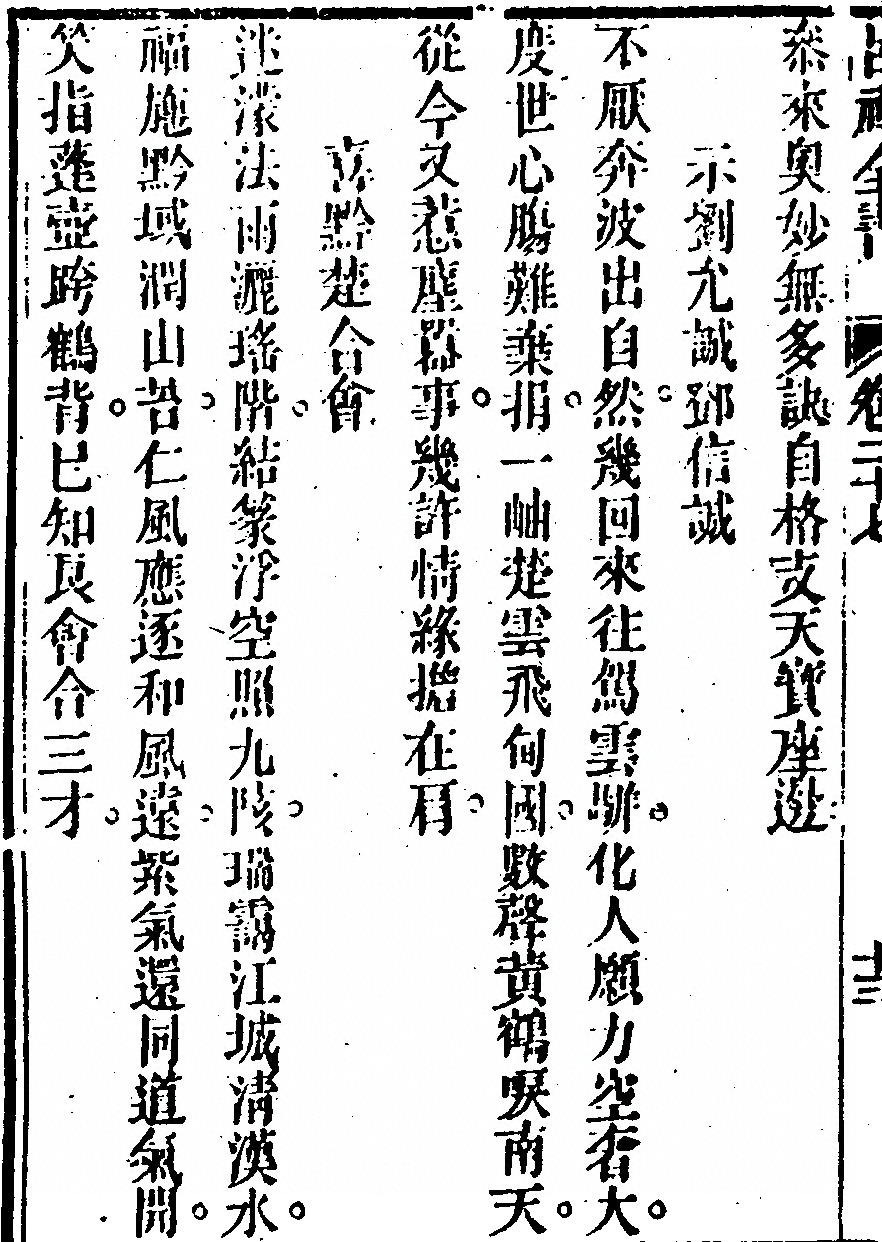 呂祖全書 卷二十七 十三
叅來奧妙無多訣自格支天寶座邊
示劉允誠鄧信誠
不厭奔波出自然幾回來往駕雲軿化人願力空奢大
度世心腸難棄捐一岫楚雲飛甸國數聲黃鶴唳南天
從今又惹塵嚣事幾許情緣擔在肩
喜黔楚合會
迷濛法雨灑瑤階結篆浮空照九陔瑞靄江城清漢水
福施黔域潤山苔仁風應逐和風遠紫氣還同道氣開
笑指蓬壺跨鶴背已知良會合三才